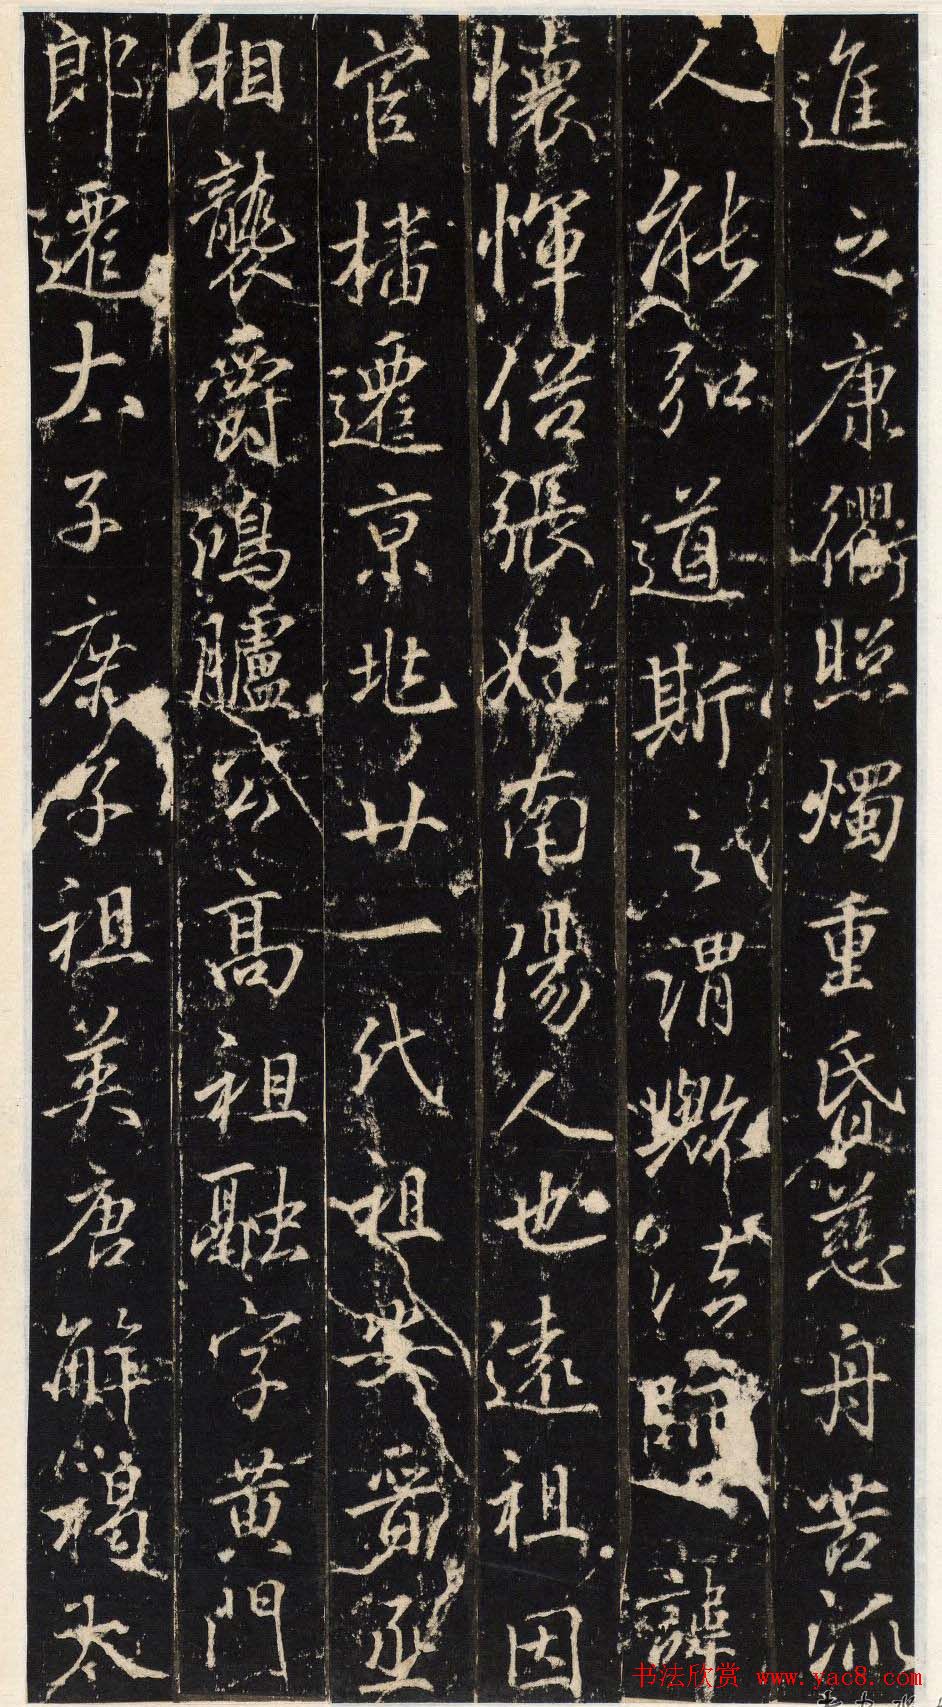 進之康衢照燭重昏慈舟苦派
人能弘道斯之謂歟法師諱
懷惲俗張姓南陽人也遠祖因
官播遷京兆廿一代祖華晉丞
相襲爵鴻臚公高祖融字黄門
郎遷太子庶子祖英唐解褐太
书法欣赏 www.yac8.com